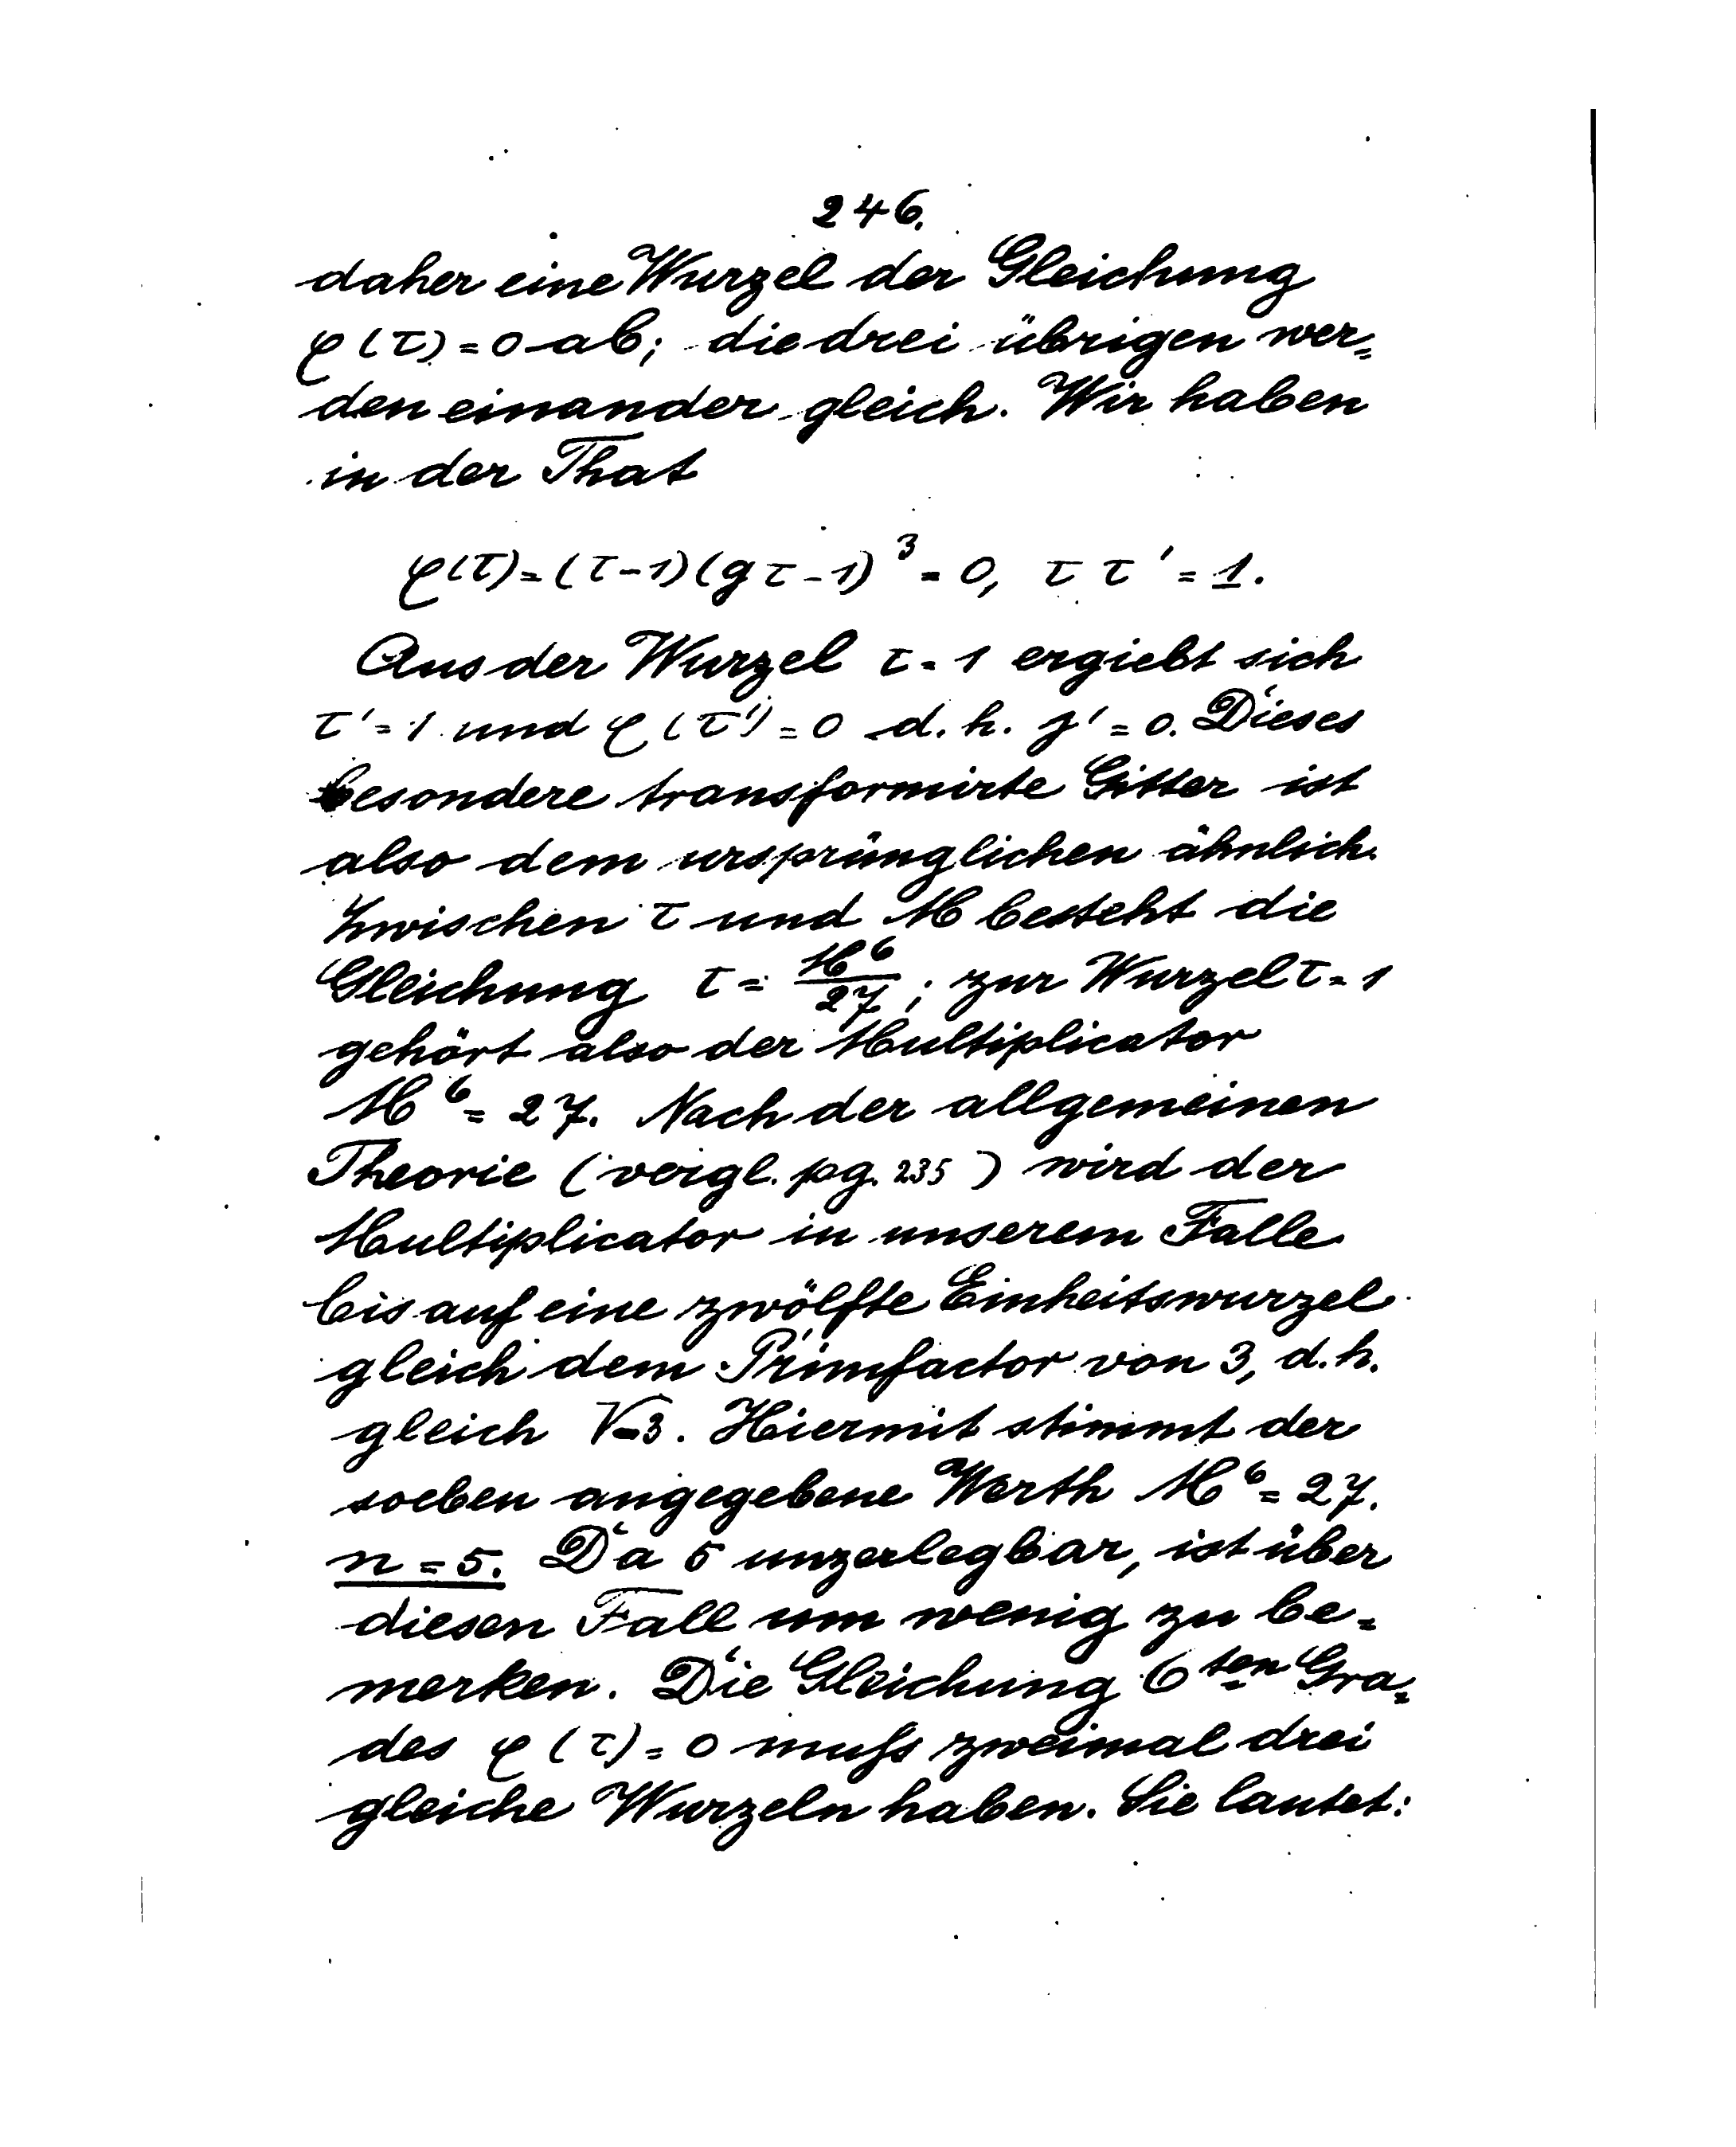 246.
daher eine Wurzel der Gleichung
φ(τ)=0 ab; die drei übrigen wer=
den einander gleich. Wir haben
in der That
φ(τ)=(τ-1)(9τ-1)³=0, ττ'=1.
Aus der Wurzel τ=1 ergiebt sich
τ'=1 und φ(τ')=0 d.h. J'=0. Dieses
besondere transformirte Gitter ist
also dem ursprünglichen ähnlich.
Zwischen τ und M besteht die
Gleichung τ = M⁶/27; zur Wurzel τ=1
gehört also der Multiplicator
M⁶=27. Nach der allgemeinen
Theorie (vergl. pg. 235) wird der
Multiplicator in unserem Falle
bis auf eine zwölfte Einheitswurzel
gleich dem Primfactor von 3, d.h.
gleich √-3. Hiermit stimmt der
soeben angegebene Werth M⁶=27.
n=5. Da 5 unzerlegbar, ist über
diesen Fall um wenig zu be=
merken. Die Gleichung 6ten Gra=
des φ(τ)=0 muſs zweimal drei
gleiche Wurzeln haben. Sie lautet: